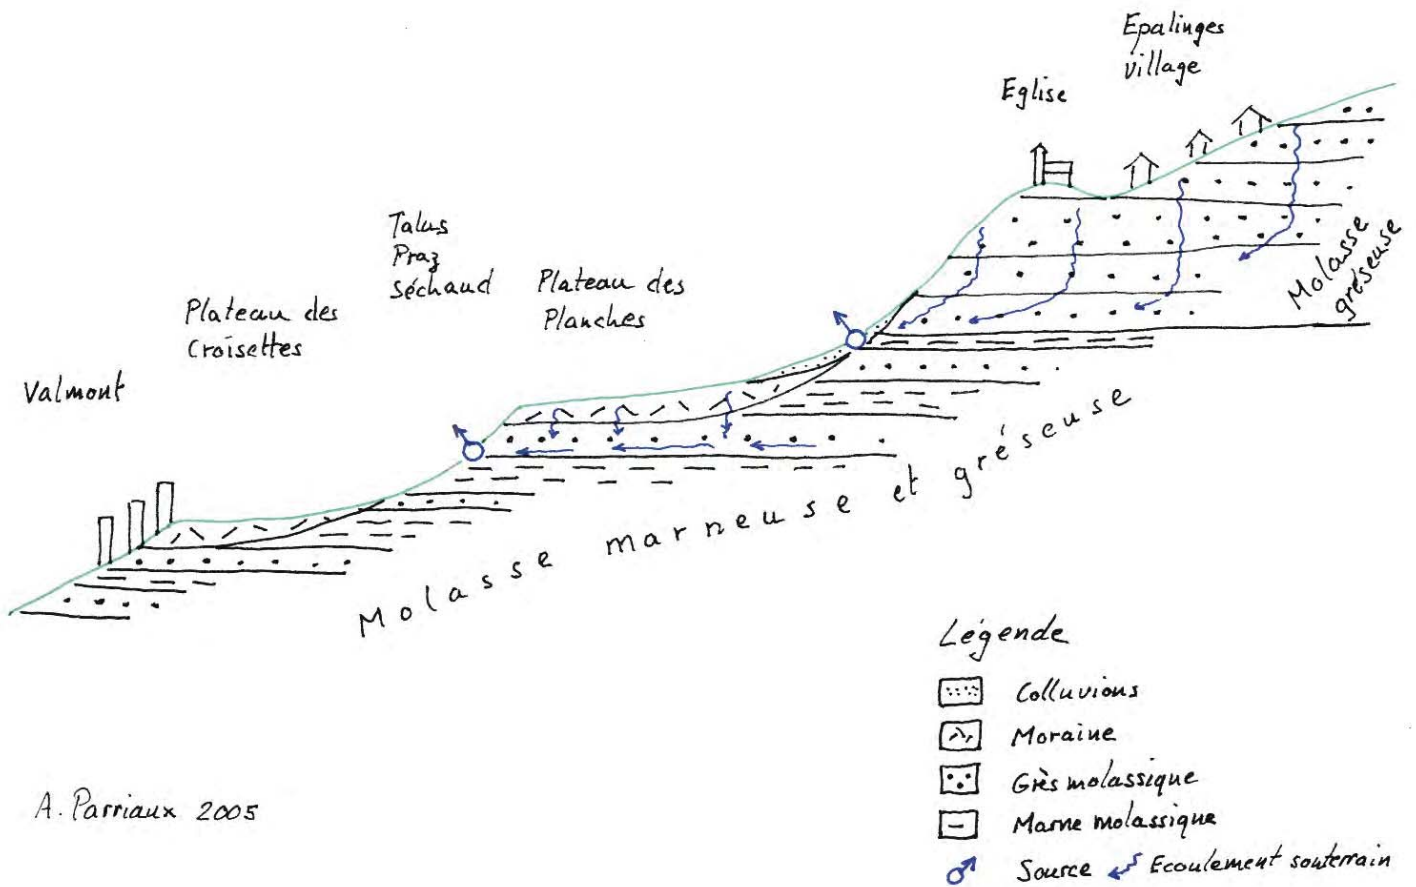 Epalinges
village
Eglise
Talus
Praz
Séchaud
Plateau des
Planches
Plateau des
Croisettes
Valmont
Molasse
gréseuse
Molasse marneuse et gréseuse
Légende
Colluvions
Moraine
Grès molassique
Marne molassique
Source
Ecoulement souterrain
A. Parriaux 2005